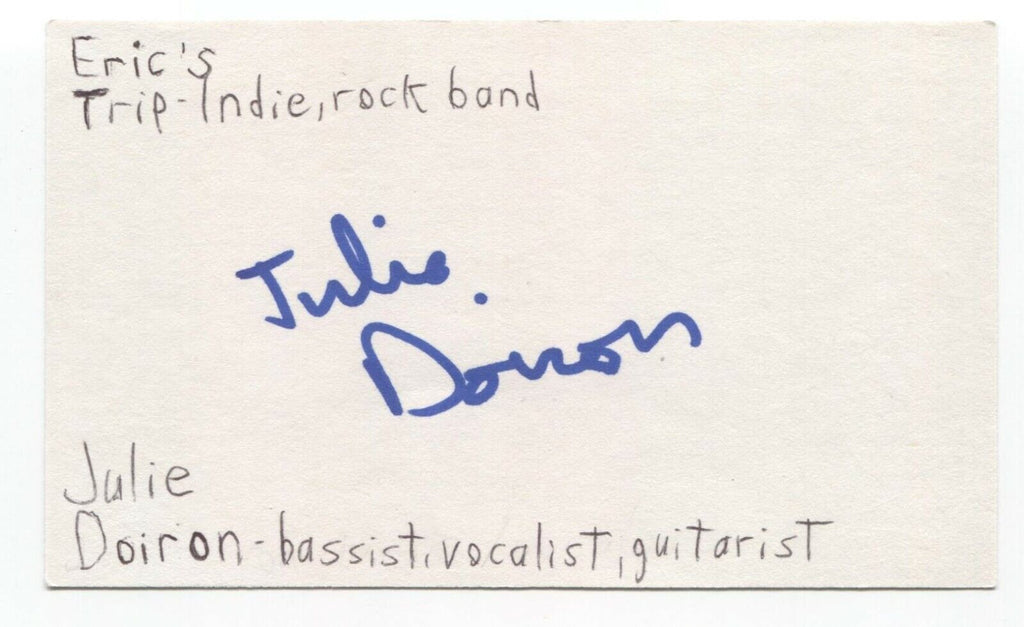 Eric's
Trip-Indie, rock band
Julie
Doiron
Julie
Doiron-bassist, vocalist, guitarist